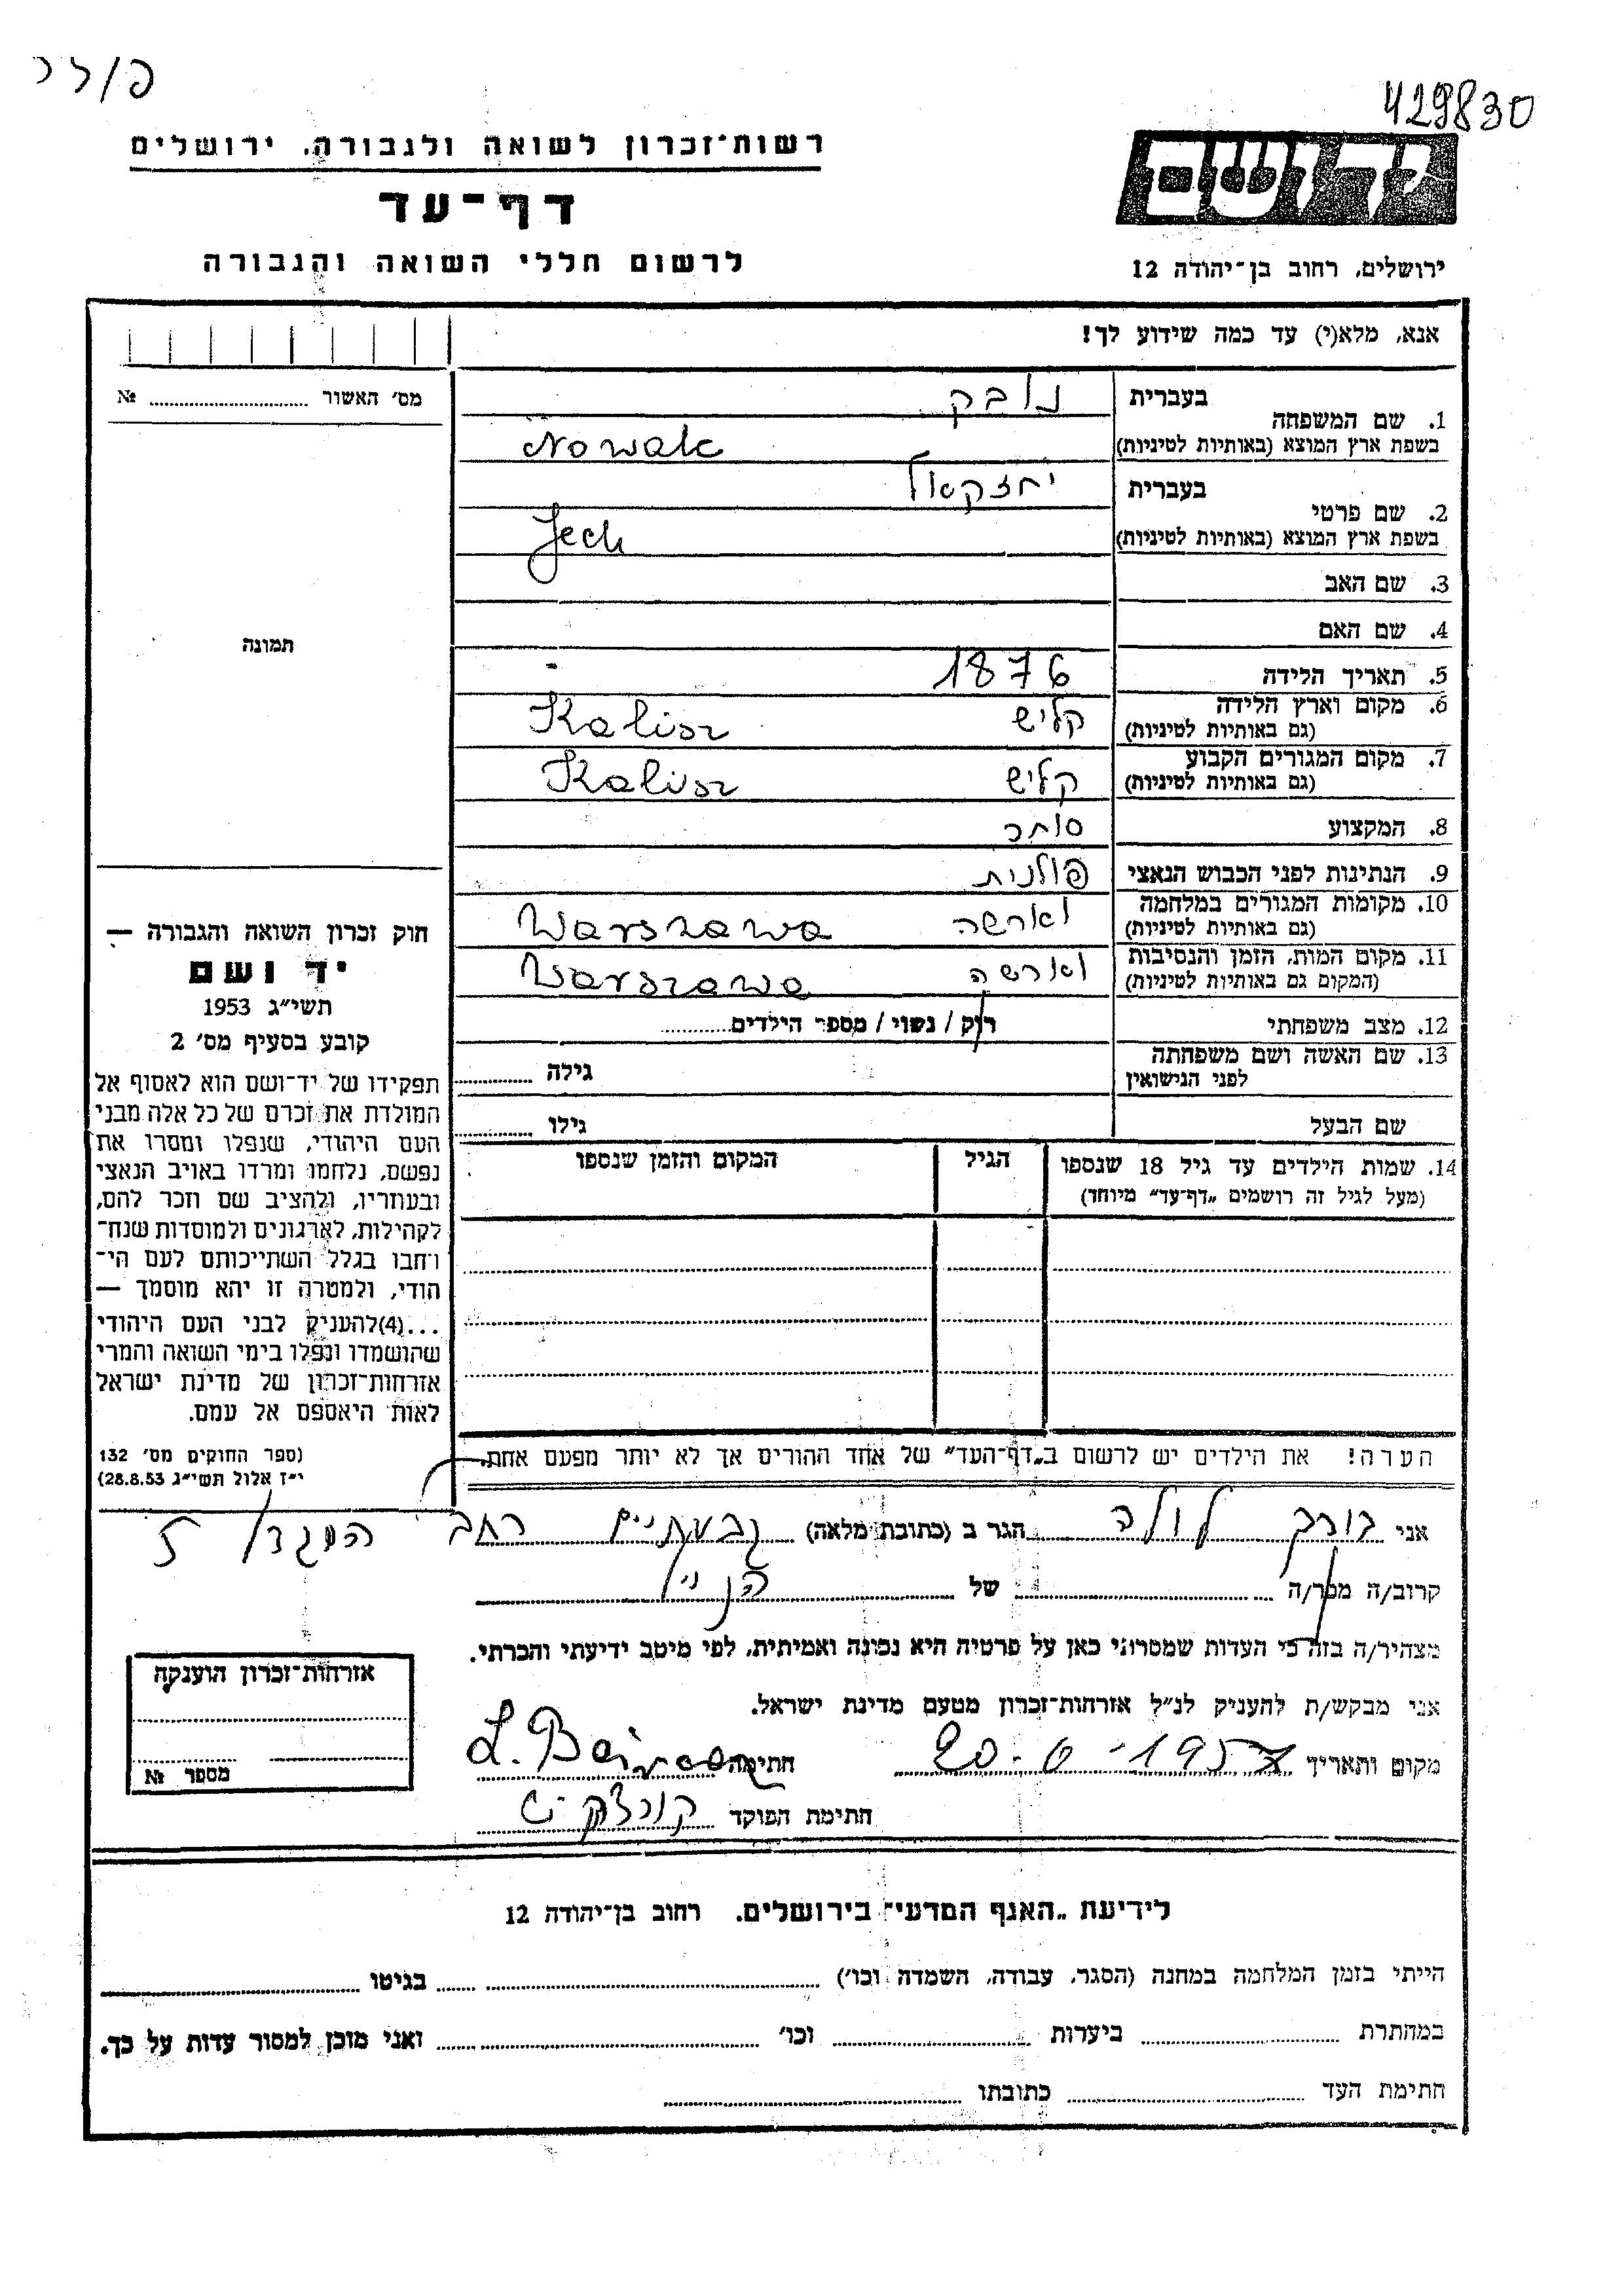 429830
רשות־זכרון לשואה ולגבורה, ירושלים
דף־עד
לרשום חללי השואה והגבורה
ידושם
ירושלים, רחוב בן־יהודה 12
אנא, מלא(י) עד כמה שידוע לך!
מס׳ האשור № 
1. שם המשפחה בעברית נובק
בשפת ארץ המוצא (באותיות לטיניות) Nowak
2. שם פרטי בעברית יחזקאל
בשפת ארץ המוצא (באותיות לטיניות) Jech
3. שם האב
4. שם האם
תמונה
5. תאריך הלידה 1876
6. מקום וארץ הלידה (גם באותיות לטיניות) קליש Kalisz
7. מקום המגורים הקבוע (גם באותיות לטיניות) קליש Kalisz
8. המקצוע סוחר
9. הנתינות לפני הכבוש הנאצי פולנית
10. מקומות המגורים במלחמה (גם באותיות לטיניות) וארשה Warszawa
11. מקום המות, הזמן והנסיבות (המקום גם באותיות לטיניות) וארשה Warszawa
12. מצב משפחתי רוק / נשוי / מספר הילדים
13. שם האשה ושם משפחתה לפני הנישואין גילה
שם הבעל גילו
14. שמות הילדים עד גיל 18 שנספו הגיל המקום והזמן שנספו
(מעל לגיל זה רושמים „דף־עד״ מיוחד)
חוק זכרון השואה והגבורה —
יד ושם
תשי״ג 1953
קובע בסעיף מס׳ 2
תפקידו של יד־ושם הוא לאסוף אל
המולדת את זכרם של כל אלה מבני
העם היהודי, שנפלו ומסרו את
נפשם, נלחמו ומרדו באויב הנאצי
ובעוזריו, ולהציב שם וזכר להם,
לקהילות, לארגונים ולמוסדות שנח־
רבו בגלל השתייכותם לעם הי־
הודי, ולמטרה זו יהא מוסמך —
...(4)להעניק לבני העם היהודי
שהושמדו ונפלו בימי השואה והמרי
אזרחות־זכרון של מדינת ישראל
לאות היאספם אל עמם.
(ספר החוקים מס׳ 132
י״ז אלול תשי״ג 28.8.53)
הערה! את הילדים יש לרשום ב„דף־העד״ של אחד ההורים אך לא יותר מפעם אחת.
אני לולה הגר ב (כתובת מלאה) גבעתיים רחב המגדל 5
קרוב/ה מכר/ה של הנ״ל
מצהיר/ה בזה כי העדות שמסרתי כאן על פרטיה היא נכונה ואמיתית, לפי מיטב ידיעתי והכרתי.
אני מבקש/ת להעניק לנ״ל אזרחות־זכרון מטעם מדינת ישראל.
מקום ותאריך 20-6-1957 חתימה L.
חתימת הפוקד
אזרחות־זכרון הוענקה
מספר №
לידיעת „האגף המדעי״ בירושלים, רחוב בן־יהודה 12
הייתי בזמן המלחמה במחנה (הסגר, עבודה, השמדה וכו׳) בגיטו
במחתרת ביערות וכו׳ ואני מוכן למסור עדות על כך.
חתימת העד כתובתו